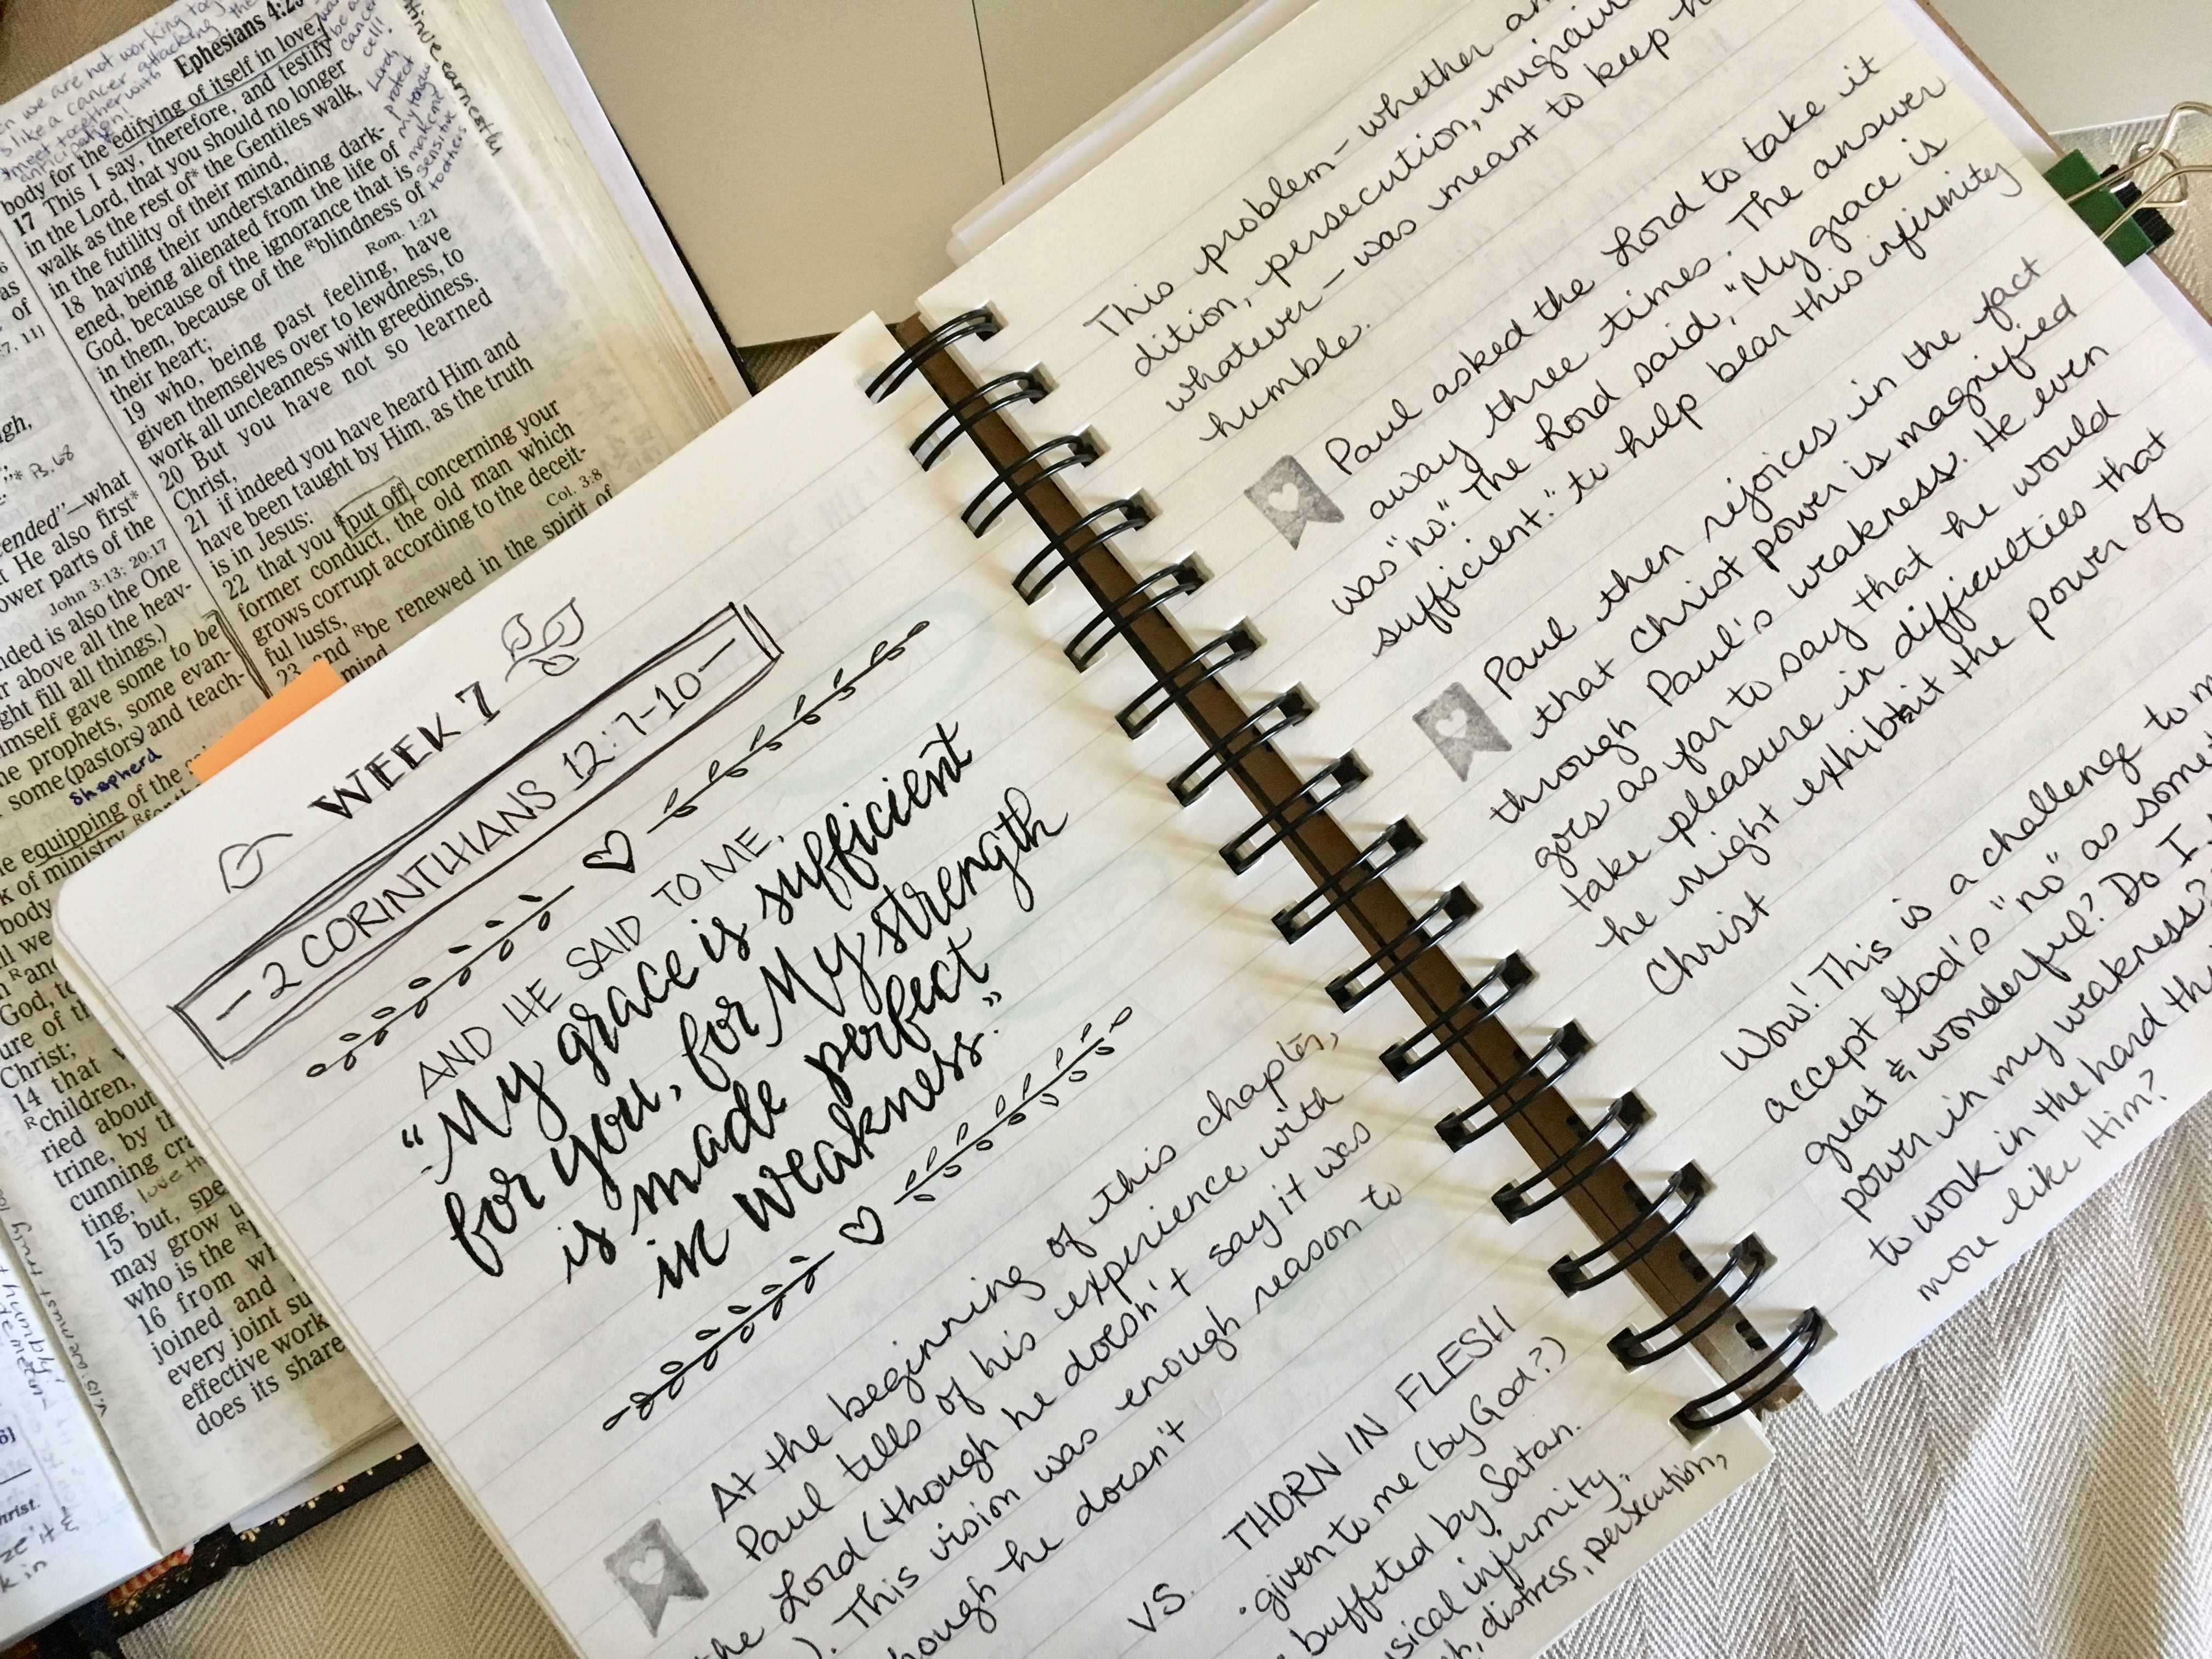 Ephesians 4:2
body for the edifying of itself in love.
17 This I say, therefore, and testify
in the Lord, that you should no longer
walk as the rest of* the Gentiles walk,
in the futility of their mind,
18 having their understanding dark-
ened, being alienated from the life of
God, because of the ignorance that is
in them, because of the ᴿblindness of
their heart; Rom. 1:21
19 who, being past feeling, have
given themselves over to lewdness, to
work all uncleanness with greediness.
20 But you have not so learned
Christ,
21 if indeed you have heard Him and
have been taught by Him, as the truth
is in Jesus:
22 that you ᴿput off concerning your
former conduct, the old man which
grows corrupt according to the deceit-
ful lusts, Col. 3:8
23 and ᴿbe renewed in the spirit of
mind
like a cancer attacking
meet together with
cancer
cell!
Lord,
protect
my tongue
make me
sensitive
to others
earnestly
Ps. 68
ended"—what
He also first*
ower parts of the
John 3:13; 20:17
nded is also the One
above all the heav-
ght fill all things.)
mself gave some to be
he prophets, some evan-
some (pastors) and teach-
Shepherd
equipping of the
of ministry
body
God, to
ure of th
Christ;
14 that
ᴿchildren,
ried about
trine, by th
cunning cra
ting,
15 but, spe
may grow u
who is the ᴿ
16 from wh
joined and
every joint su
effective work
does its share
WEEK 7
- 2 CORINTHIANS 12:7-10 -
AND HE SAID TO ME,
"My grace is sufficient
for you, for My strength
is made perfect
in weakness."
At the beginning of this chapter,
Paul tells of his experience with
the Lord (though he doesn't say it was
). This vision was enough reason to
hough he doesn't
VS. THORN IN FLESH
· given to me (by God?)
buffeted by Satan.
sical infirmity,
distress, persecution,
This problem - whether
dition, persecution, migrain
whatever - was meant to keep h
humble.
Paul asked the Lord to take it
away three times. The answer
was "no." The Lord said, "My grace is
sufficient." to help bear this infirmity
Paul then rejoices in the fact
that Christ power is magnified
through Paul's weakness. He even
goes as far to say that he would
take pleasure in difficulties that
he might exhibit the power of
Christ
Wow! This is a challenge to m
accept God's "no" as somet
great & wonderful? Do I
power in my weakness?
to work in the hard th
more like Him?